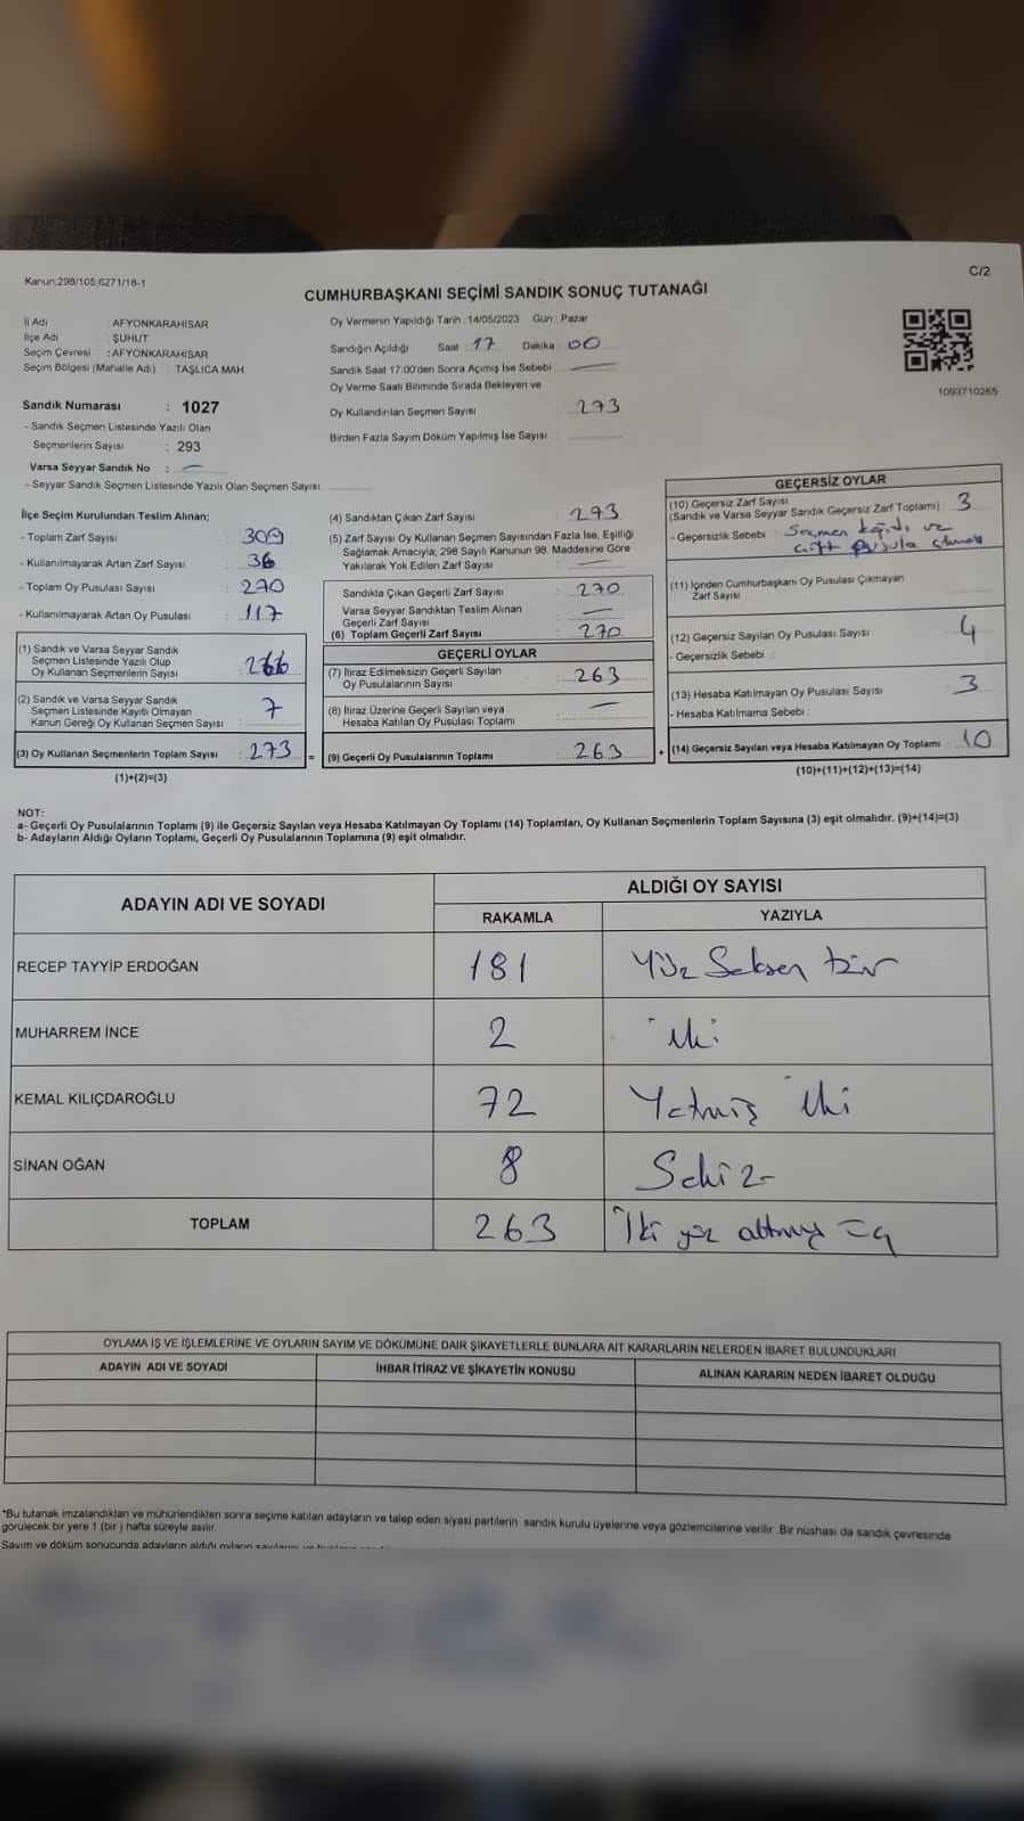 Kanun:298/105,6271/18-1
C/2
CUMHURBAŞKANI SEÇİMİ SANDIK SONUÇ TUTANAĞI
İl Adı : AFYONKARAHİSAR
İlçe Adı : ŞUHUT
Seçim Çevresi : AFYONKARAHİSAR
Seçim Bölgesi (Mahalle Adı) : TAŞLICA MAH.
Sandık Numarası : 1027
- Sandık Seçmen Listesinde Yazılı Olan
Seçmenlerin Sayısı : 293
Varsa Seyyar Sandık No : —
- Seyyar Sandık Seçmen Listesinde Yazılı Olan Seçmen Sayısı
Oy Vermenin Yapıldığı Tarih :14/05/2023 Gün : Pazar
Sandığın Açıldığı Saat 17 Dakika 00
Sandık Saat 17:00'den Sonra Açımış İse Sebebi —
Oy Verme Saati Bitiminde Sırada Bekleyen ve
Oy Kullandırılan Seçmen Sayısı 273
Birden Fazla Sayım Döküm Yapılmış İse Sayısı
1093710265
İlçe Seçim Kurulundan Teslim Alınan;
- Toplam Zarf Sayısı : 309
- Kullanılmayarak Artan Zarf Sayısı : 36
- Toplam Oy Pusulası Sayısı : 270
- Kullanılmayarak Artan Oy Pusulası : 117
(1) Sandık ve Varsa Seyyar Sandık
Seçmen Listesinde Yazılı Olup
Oy Kullanan Seçmenlerin Sayısı : 266
(2) Sandık ve Varsa Seyyar Sandık
Seçmen Listesinde Kayıtlı Olmayan
Kanun Gereği Oy Kullanan Seçmen Sayısı : 7
(3) Oy Kullanan Seçmenlerin Toplam Sayısı : 273 =
(1)+(2)=(3)
(4) Sandıktan Çıkan Zarf Sayısı : 273
(5) Zarf Sayısı Oy Kullanan Seçmen Sayısından Fazla İse, Eşitliği
Sağlamak Amacıyla; 298 Sayılı Kanunun 98. Maddesine Göre
Yakılarak Yok Edilen Zarf Sayısı : —
Sandıkta Çıkan Geçerli Zarf Sayısı : 270
Varsa Seyyar Sandıktan Teslim Alınan
Geçerli Zarf Sayısı : —
(6) Toplam Geçerli Zarf Sayısı : 270
GEÇERLİ OYLAR
(7) İtiraz Edilmeksizin Geçerli Sayılan
Oy Pusulalarının Sayısı : 263
(8) İtiraz Üzerine Geçerli Sayılan veya
Hesaba Katılan Oy Pusulası Toplamı : —
(9) Geçerli Oy Pusulalarının Toplamı : 263 +
GEÇERSİZ OYLAR
(10) Geçersiz Zarf Sayısı
(Sandık ve Varsa Seyyar Sandık Geçersiz Zarf Toplamı) 3
- Geçersizlik Sebebi : Seçmen kağıdı ve
çift pusula
(11) İçinden Cumhurbaşkanı Oy Pusulası Çıkmayan
Zarf Sayısı
(12) Geçersiz Sayılan Oy Pusulası Sayısı : 4
- Geçersizlik Sebebi :
(13) Hesaba Katılmayan Oy Pusulası Sayısı : 3
- Hesaba Katılmama Sebebi :
(14) Geçersiz Sayılan veya Hesaba Katılmayan Oy Toplamı : 10
(10)+(11)+(12)+(13)=(14)
NOT:
a- Geçerli Oy Pusulalarının Toplamı (9) ile Geçersiz Sayılan veya Hesaba Katılmayan Oy Toplamı (14) Toplamları, Oy Kullanan Seçmenlerin Toplam Sayısına (3) eşit olmalıdır. (9)+(14)=(3)
b- Adayların Aldığı Oyların Toplamı, Geçerli Oy Pusulalarının Toplamına (9) eşit olmalıdır.
ADAYIN ADI VE SOYADI
ALDIĞI OY SAYISI
RAKAMLA YAZIYLA
RECEP TAYYİP ERDOĞAN 181 Yüz Seksen bir
MUHARREM İNCE 2 iki
KEMAL KILIÇDAROĞLU 72 Yetmiş iki
SİNAN OĞAN 8 Sekiz
TOPLAM 263 İki yüz altmış üç
OYLAMA İŞ VE İŞLEMLERİNE VE OYLARIN SAYIM VE DÖKÜMÜNE DAİR ŞİKAYETLERLE BUNLARA AİT KARARLARIN NELERDEN İBARET BULUNDUKLARI
ADAYIN ADI VE SOYADI İHBAR İTİRAZ VE ŞİKAYETİN KONUSU ALINAN KARARIN NEDEN İBARET OLDUĞU
*Bu tutanak imzalandıktan ve mühürlendikten sonra seçime katılan adayların ve talep eden siyasi partilerin sandık kurulu üyelerine veya gözlemcilerine verilir. Bir nüshası da sandık çevresinde
görülecek bir yere 1 (bir ) hafta süreyle asılır.
Sayım ve döküm sonucunda adayların aldığı oyların